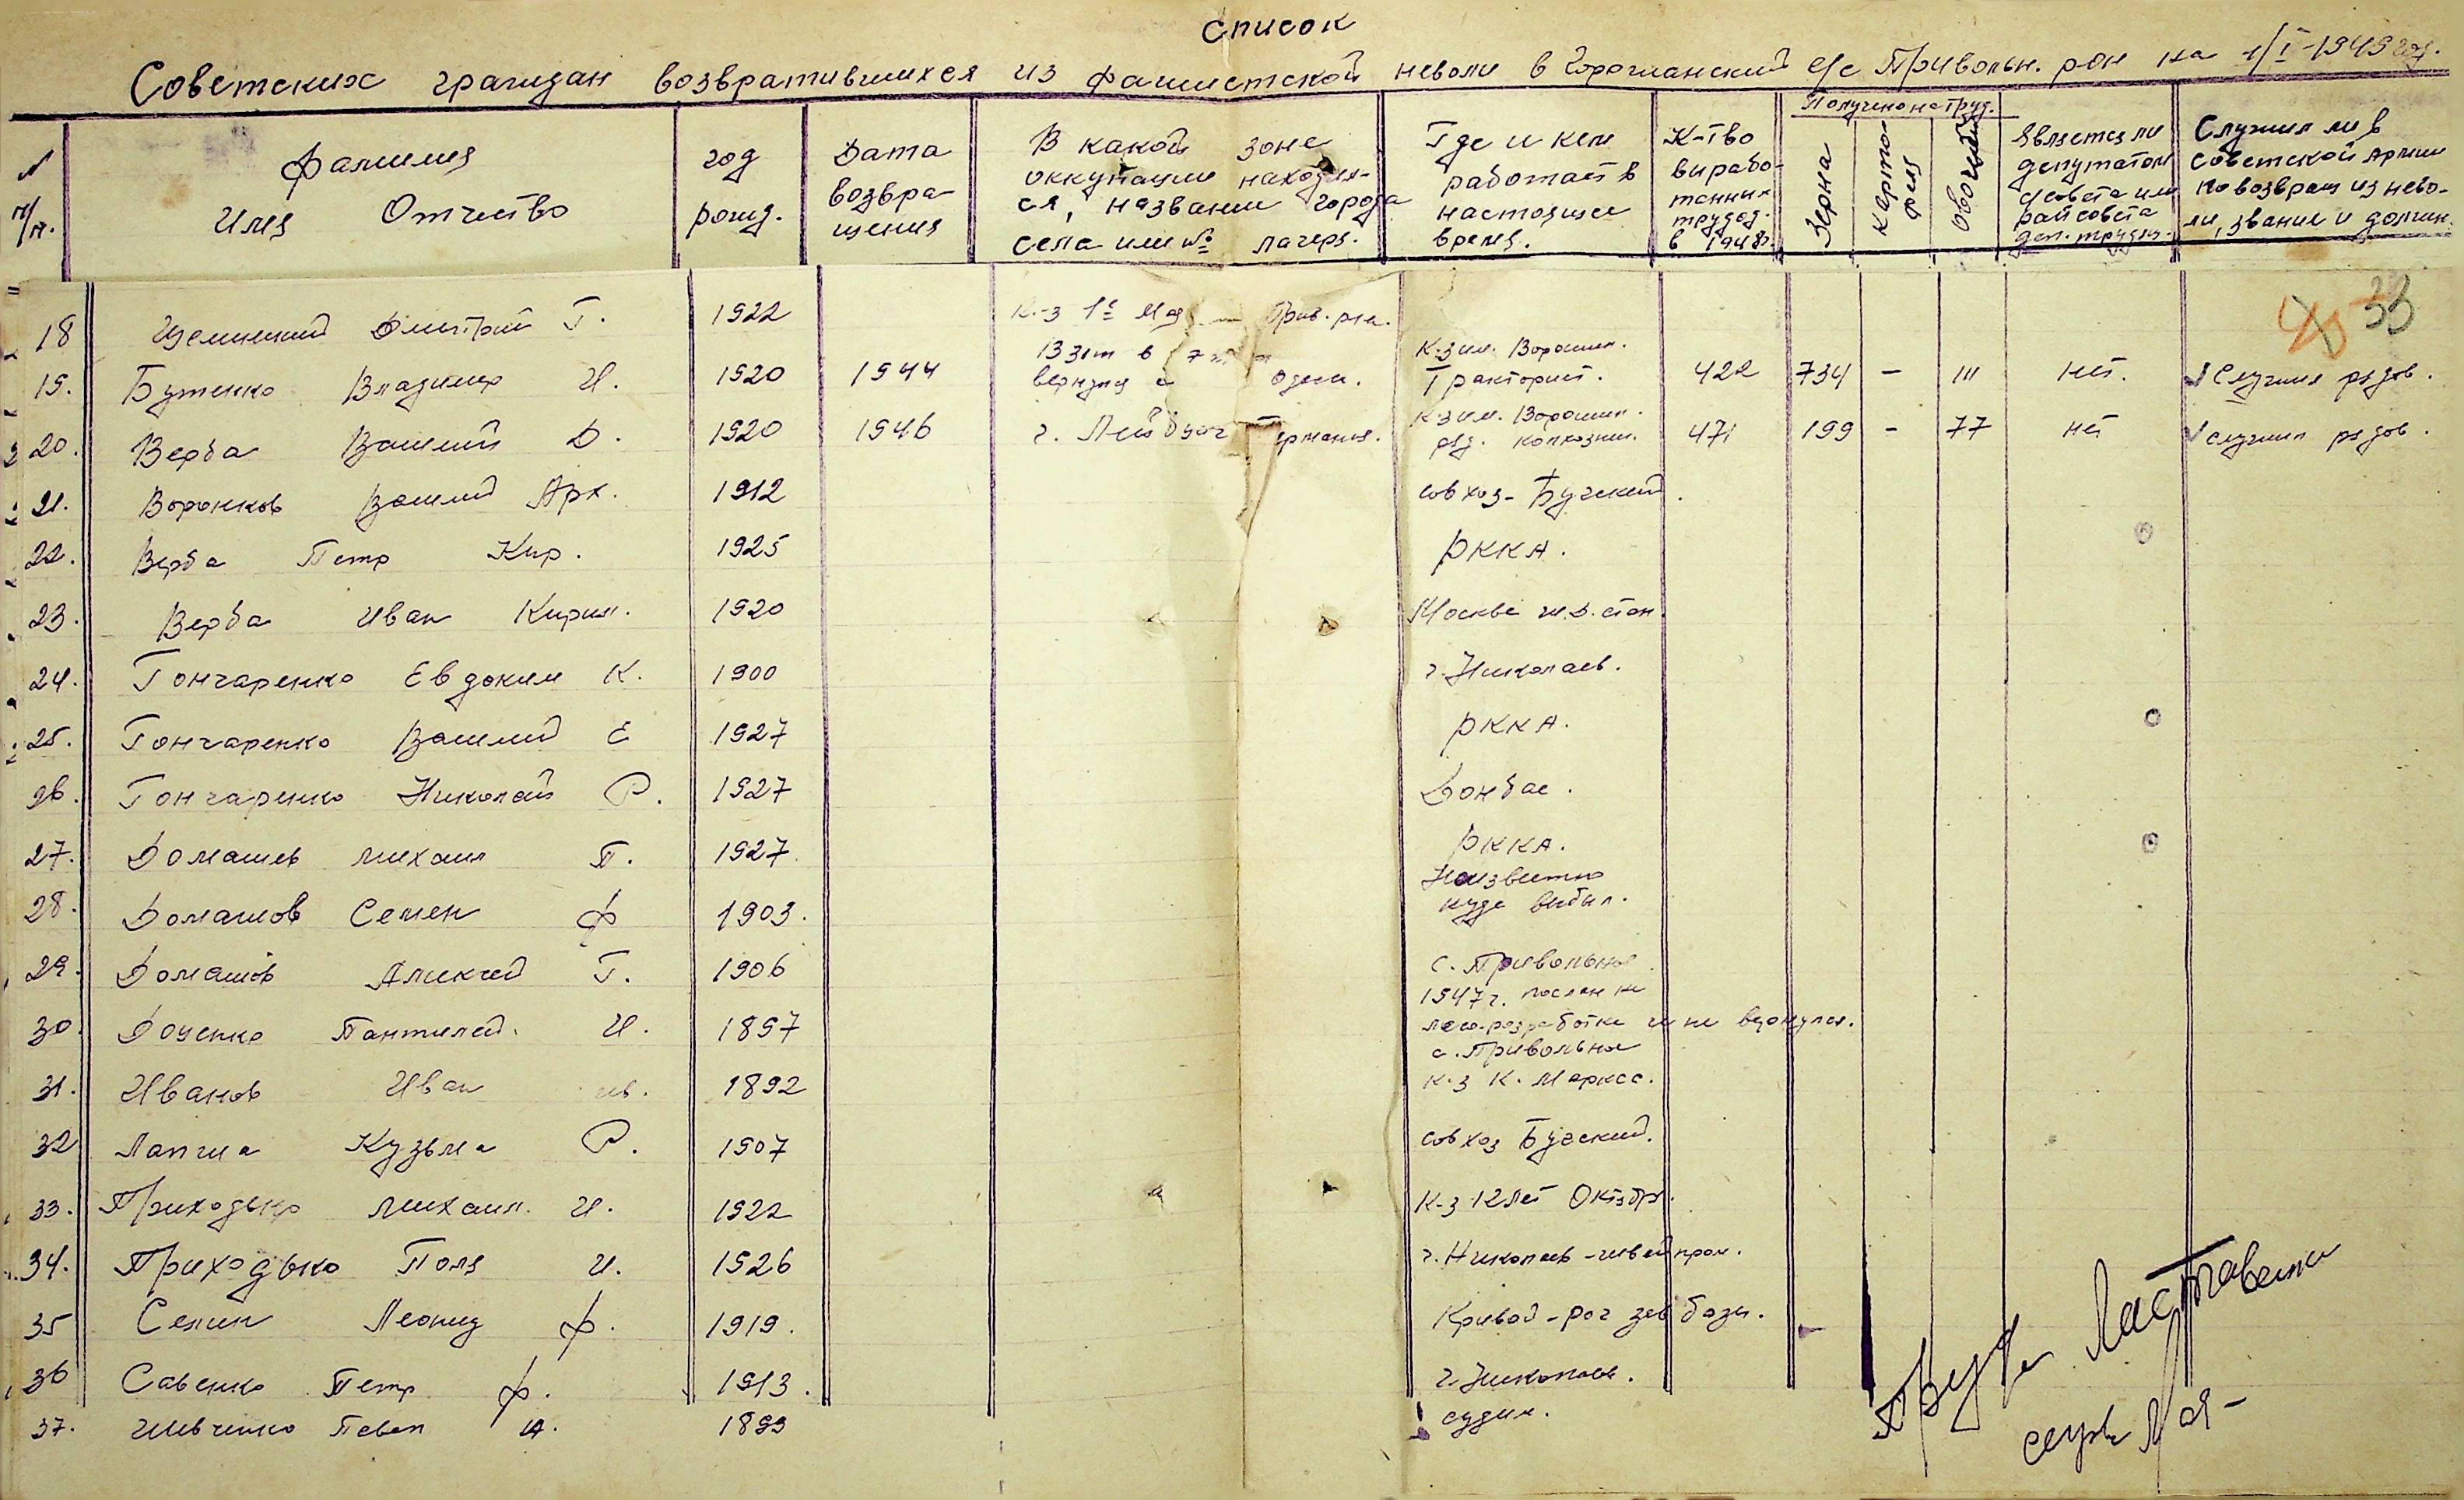 список
Советских граждан возвратившихся из фашистской неволи в Горожанский с/с Привольн. р-он на 1/I-1949 год.
№ п/п.
Фамилия Имя Отчество
год рожд.
Дата возвра- щения
В какой зоне оккупации находил- ся, название города села или № лагеря.
Где и кем работает в настоящее время.
К-тво вырабо- танных трудод. в 1948г.
Получено на труд.
Зерна
Карто- феля
Овощей
Является ли депутатом с/совета или райсовета деп. трудящ.
Служил ли в советской армии по возвращ из нево- ли, звание и должн.
33
18 Дмитрий Г. 1922 К-з 1е Мая Прив. р-на.
19. Бутенко Владимир И. 1920 1944 Взят в вернулся Одессы. К-з им. Ворошил. Тракторист. 422 734 – 111 нет. Служил рядов.
20. Верба Василий Д. 1920 1946 г. Германия. К-з им. Ворошил. ряд. колхозник. 471 199 – 77 нет служил рядов.
21. Воронков Василий Арх. 1912 совхоз-Бугский.
22. Верба Петр Кир. 1925 РККА.
23. Верба Иван Кирил. 1920 Москве ж.д. стан.
24. Гончаренко Евдоким К. 1900 г. Николаев.
25. Гончаренко Василий Е 1927 РККА.
26. Гончаренко Николай Р. 1927 Донбас.
27. Домашев Михаил П. 1927. РККА.
28. Домашов Семен Ф 1903. Неизвестно куда выбыл.
29. Домашов Алексей Г. 1906 с. Привольное
30. Доценко Пантилей. И. 1897 1947г. послан на лесо-разработки и не вернулся.
31. Иванов Иван ив. 1892 с. Привольное к-з К. Маркса.
32 Лапша Кузьма Р. 1907 совхоз Бугский.
33. Приходько Михаил. И. 1922 К-з 12 лет Октябр.
34. Приходько Поля И. 1926 г. Николаев-швейпром.
35 Семин Леонид Ф. 1919. Кривой-рог зав базы.
36 Савенко Петр Ф. 1913. г. Николаев.
37. Шевченко Павел А. 1899 судим.